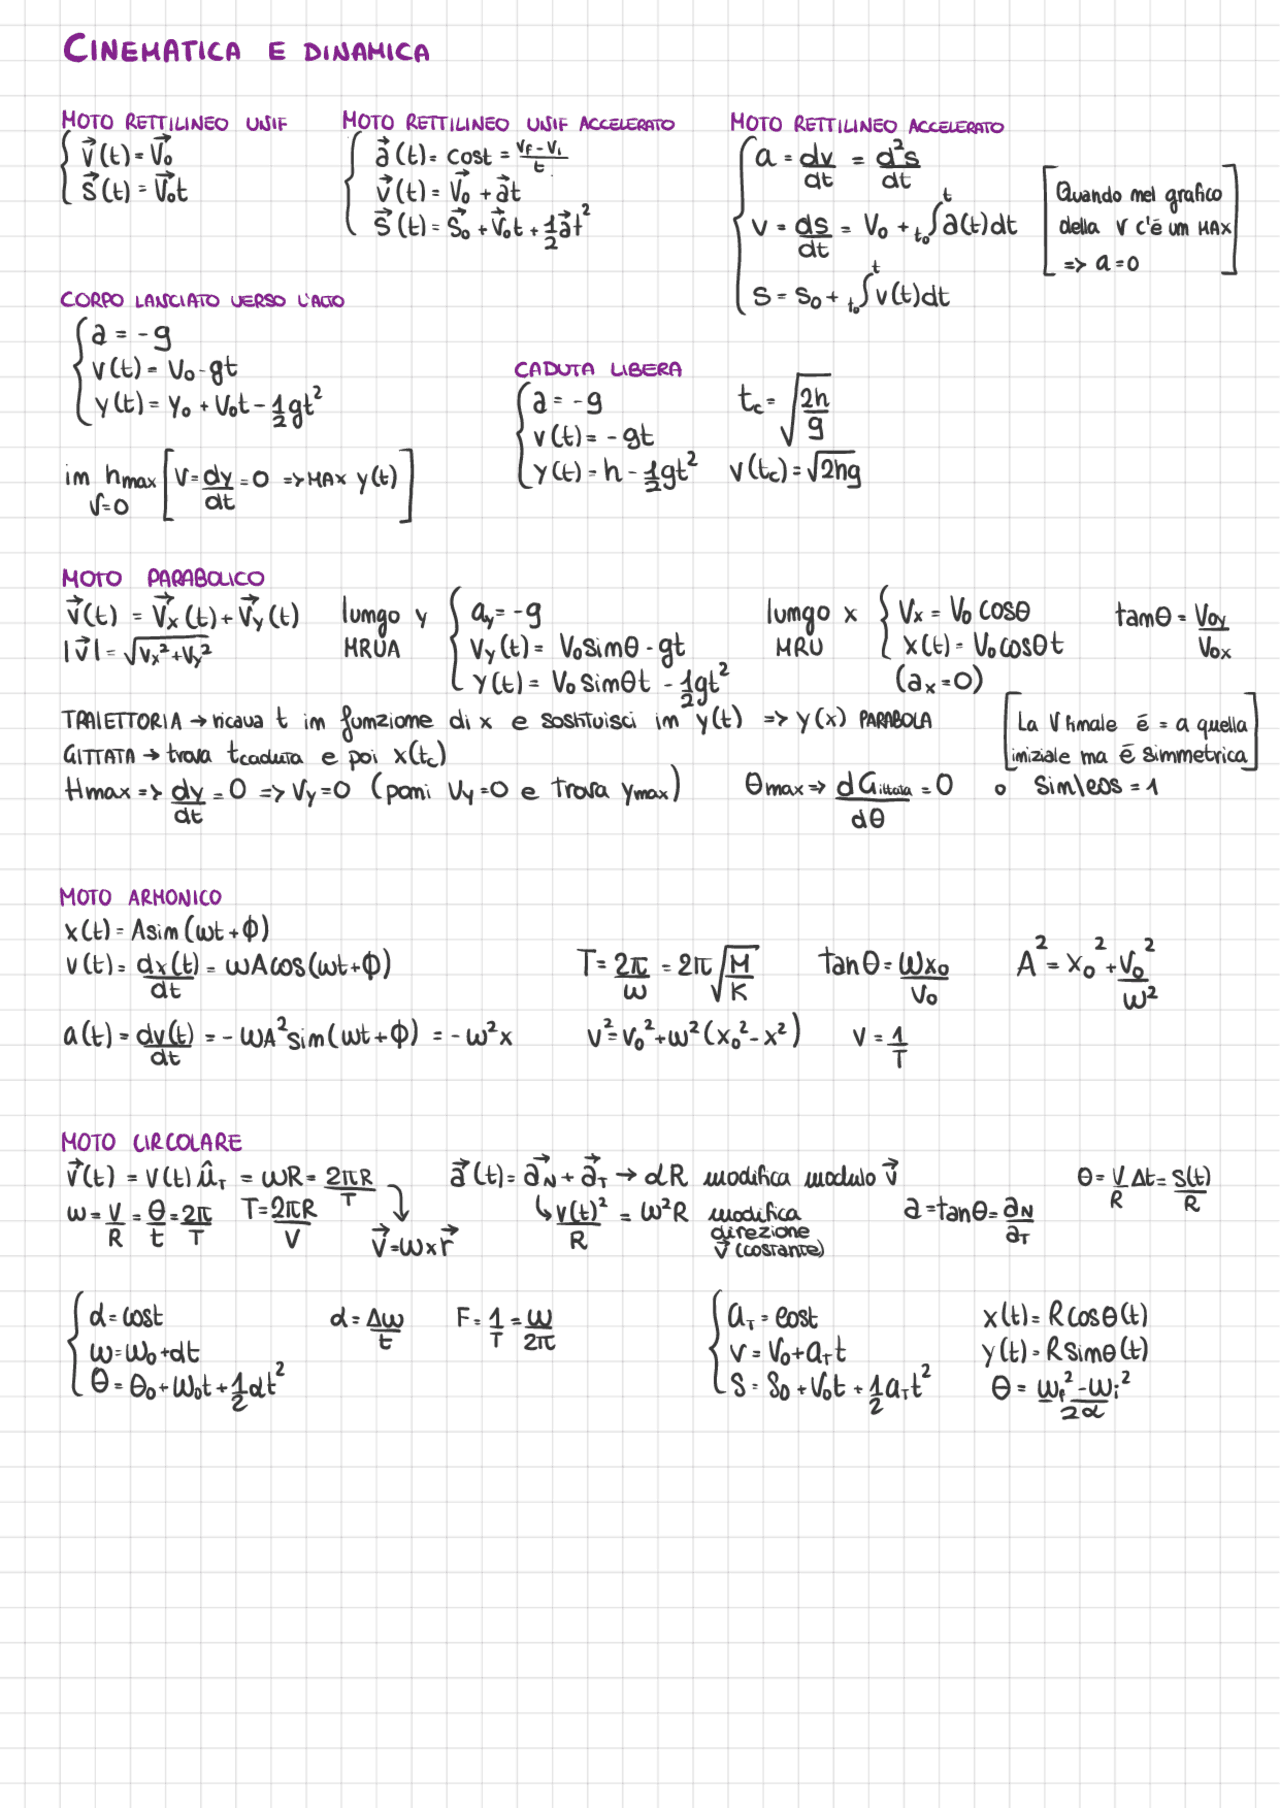 CINEMATICA E DINAMICA
MOTO RETTILINEO UNIF
v⃗(t) = v⃗₀
s⃗(t) = v⃗₀t
MOTO RETTILINEO UNIF ACCELERATO
a⃗(t) = cost = (vF - vi)/t
v⃗(t) = v⃗₀ + a⃗t
s⃗(t) = s⃗₀ + v⃗₀t + 1/2 a⃗t²
MOTO RETTILINEO ACCELERATO
a = dv/dt = d²s/dt
v = ds/dt = v₀ + t₀∫ᵗ a(t)dt
s = s₀ + t₀∫ᵗ v(t)dt
[Quando nel grafico
della v c'é un MAX
=> a = 0]
CORPO LANCIATO VERSO L'ALTO
a = -g
v(t) = v₀ - gt
y(t) = y₀ + v₀t - 1/2 gt²
in hmax [v = dy/dt = 0 => MAX y(t)]
v = 0
CADUTA LIBERA
a = -g
v(t) = -gt
y(t) = h - 1/2 gt²
tc = √(2h/g)
v(tc) = √2hg
MOTO PARABOLICO
v⃗(t) = v⃗x(t) + v⃗y(t)
|v⃗| = √(vx² + vy²)
lungo y
MRUA
ay = -g
vy(t) = v₀sinθ - gt
y(t) = v₀sinθt - 1/2 gt²
lungo x
MRU
vx = v₀cosθ
x(t) = v₀cosθt
(ax = 0)
tanθ = v₀y/v₀x
TRAIETTORIA → ricava t in funzione di x e sostituisci in y(t) => y(x) PARABOLA
GITTATA → trova tcaduta e poi x(tc)
[La v finale é = a quella
iniziale ma é simmetrica]
Hmax => dy/dt = 0 => vy = 0 (poni vy = 0 e trova ymax)
θmax => dGittata/dθ = 0 o sin\cos = 1
MOTO ARMONICO
x(t) = Asin(ωt + φ)
v(t) = dx(t)/dt = ωAcos(ωt + φ)
T = 2π/ω = 2π√(M/K)
tanθ = ωx₀/v₀
A² = x₀² + v₀²/ω²
a(t) = dv(t)/dt = -ωA²sin(ωt + φ) = -ω²x
v² = v₀² + ω²(x₀² - x²)
ν = 1/T
MOTO CIRCOLARE
v⃗(t) = v(t)ûT = ωR = 2πR/T
a⃗(t) = a⃗N + a⃗T → αR modifica modulo v⃗
θ = v/R Δt = s(t)/R
ω = v/R = θ/t = 2π/T
T = 2πR/v
v⃗ = ω × r⃗
↳ v(t)²/R = ω²R modifica
direzione
v⃗ (costante)
a = tanθ = aN/aT
α = cost
ω = ω₀ + αt
θ = θ₀ + ω₀t + 1/2 αt²
α = Δω/t
F = 1/T = ω/2π
aT = cost
v = v₀ + aTt
s = s₀ + v₀t + 1/2 aTt²
x(t) = Rcosθ(t)
y(t) = Rsinθ(t)
θ = (ωf² - ωi²)/2α